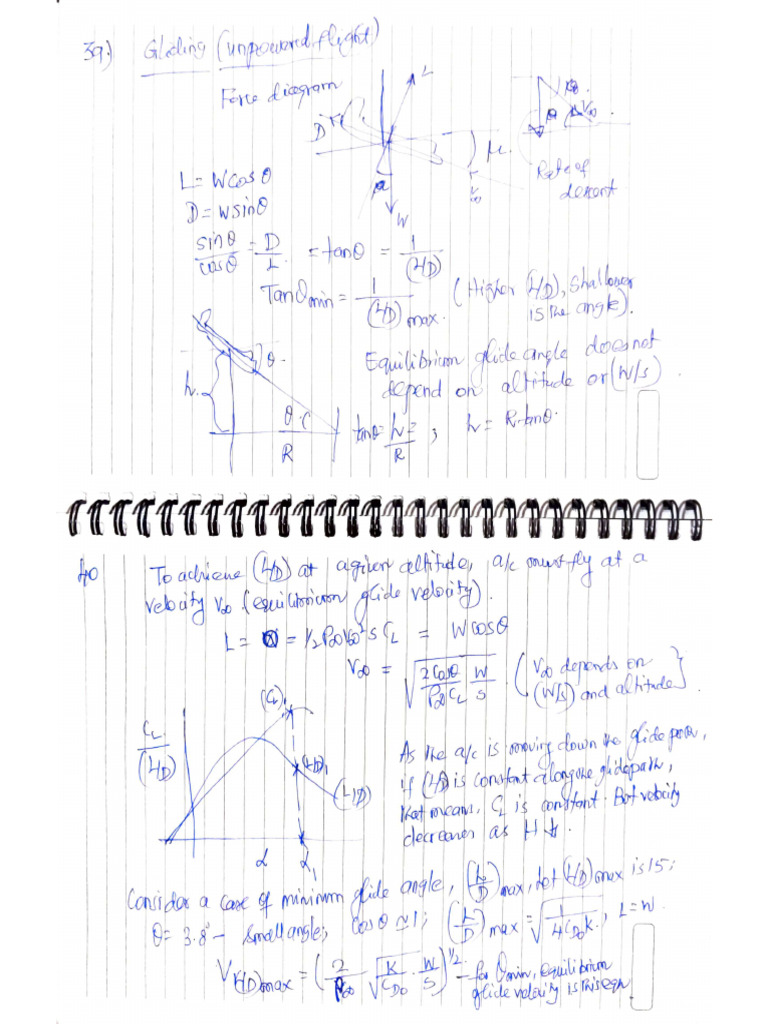 39.) Gliding (unpowered flight)
Force diagram
L
D
θ
V∞
μ.
W
Rate of
descent
L = W cos θ
D = W sin θ
sinθ/cosθ = D/L = tanθ = 1/(L/D)
Tanθmin = 1/(L/D)max. (Higher L/D, shallower
is the angle).
θ
h.
θ
R
Equilibrium glide angle does not
depend on altitude or (W/S).
tanθ = h/R ; h = R.tanθ.
40 To achieve (L/D) at a given altitude, a/c must fly at a
velocity V∞ (equilibrium glide velocity).
L = = 1/2 ρ∞ V∞² S CL = W cosθ
V∞ = √(2 cosθ/ρ∞ CL W/S) (V∞ depends on
(W/S) and altitude)
(CL)1
CL/(L/D)
(L/D)1
(L/D)
α α1
As the a/c is moving down the glide path,
if (L/D) is constant along the glidepath,
that means, CL is constant. But velocity
decreases as H ↓.
Consider a case of minimum glide angle, (L/D)max, let (L/D)max is 15;
θ = 3.8° - small angle; cosθ ≃ 1; (L/D)max = √(1/4CD0K), L=W.
V(L/D)max = (2/ρ∞ √(K/CD0) . W/S)^1/2 - for θmin, equilibrium
glide velocity is this eqn